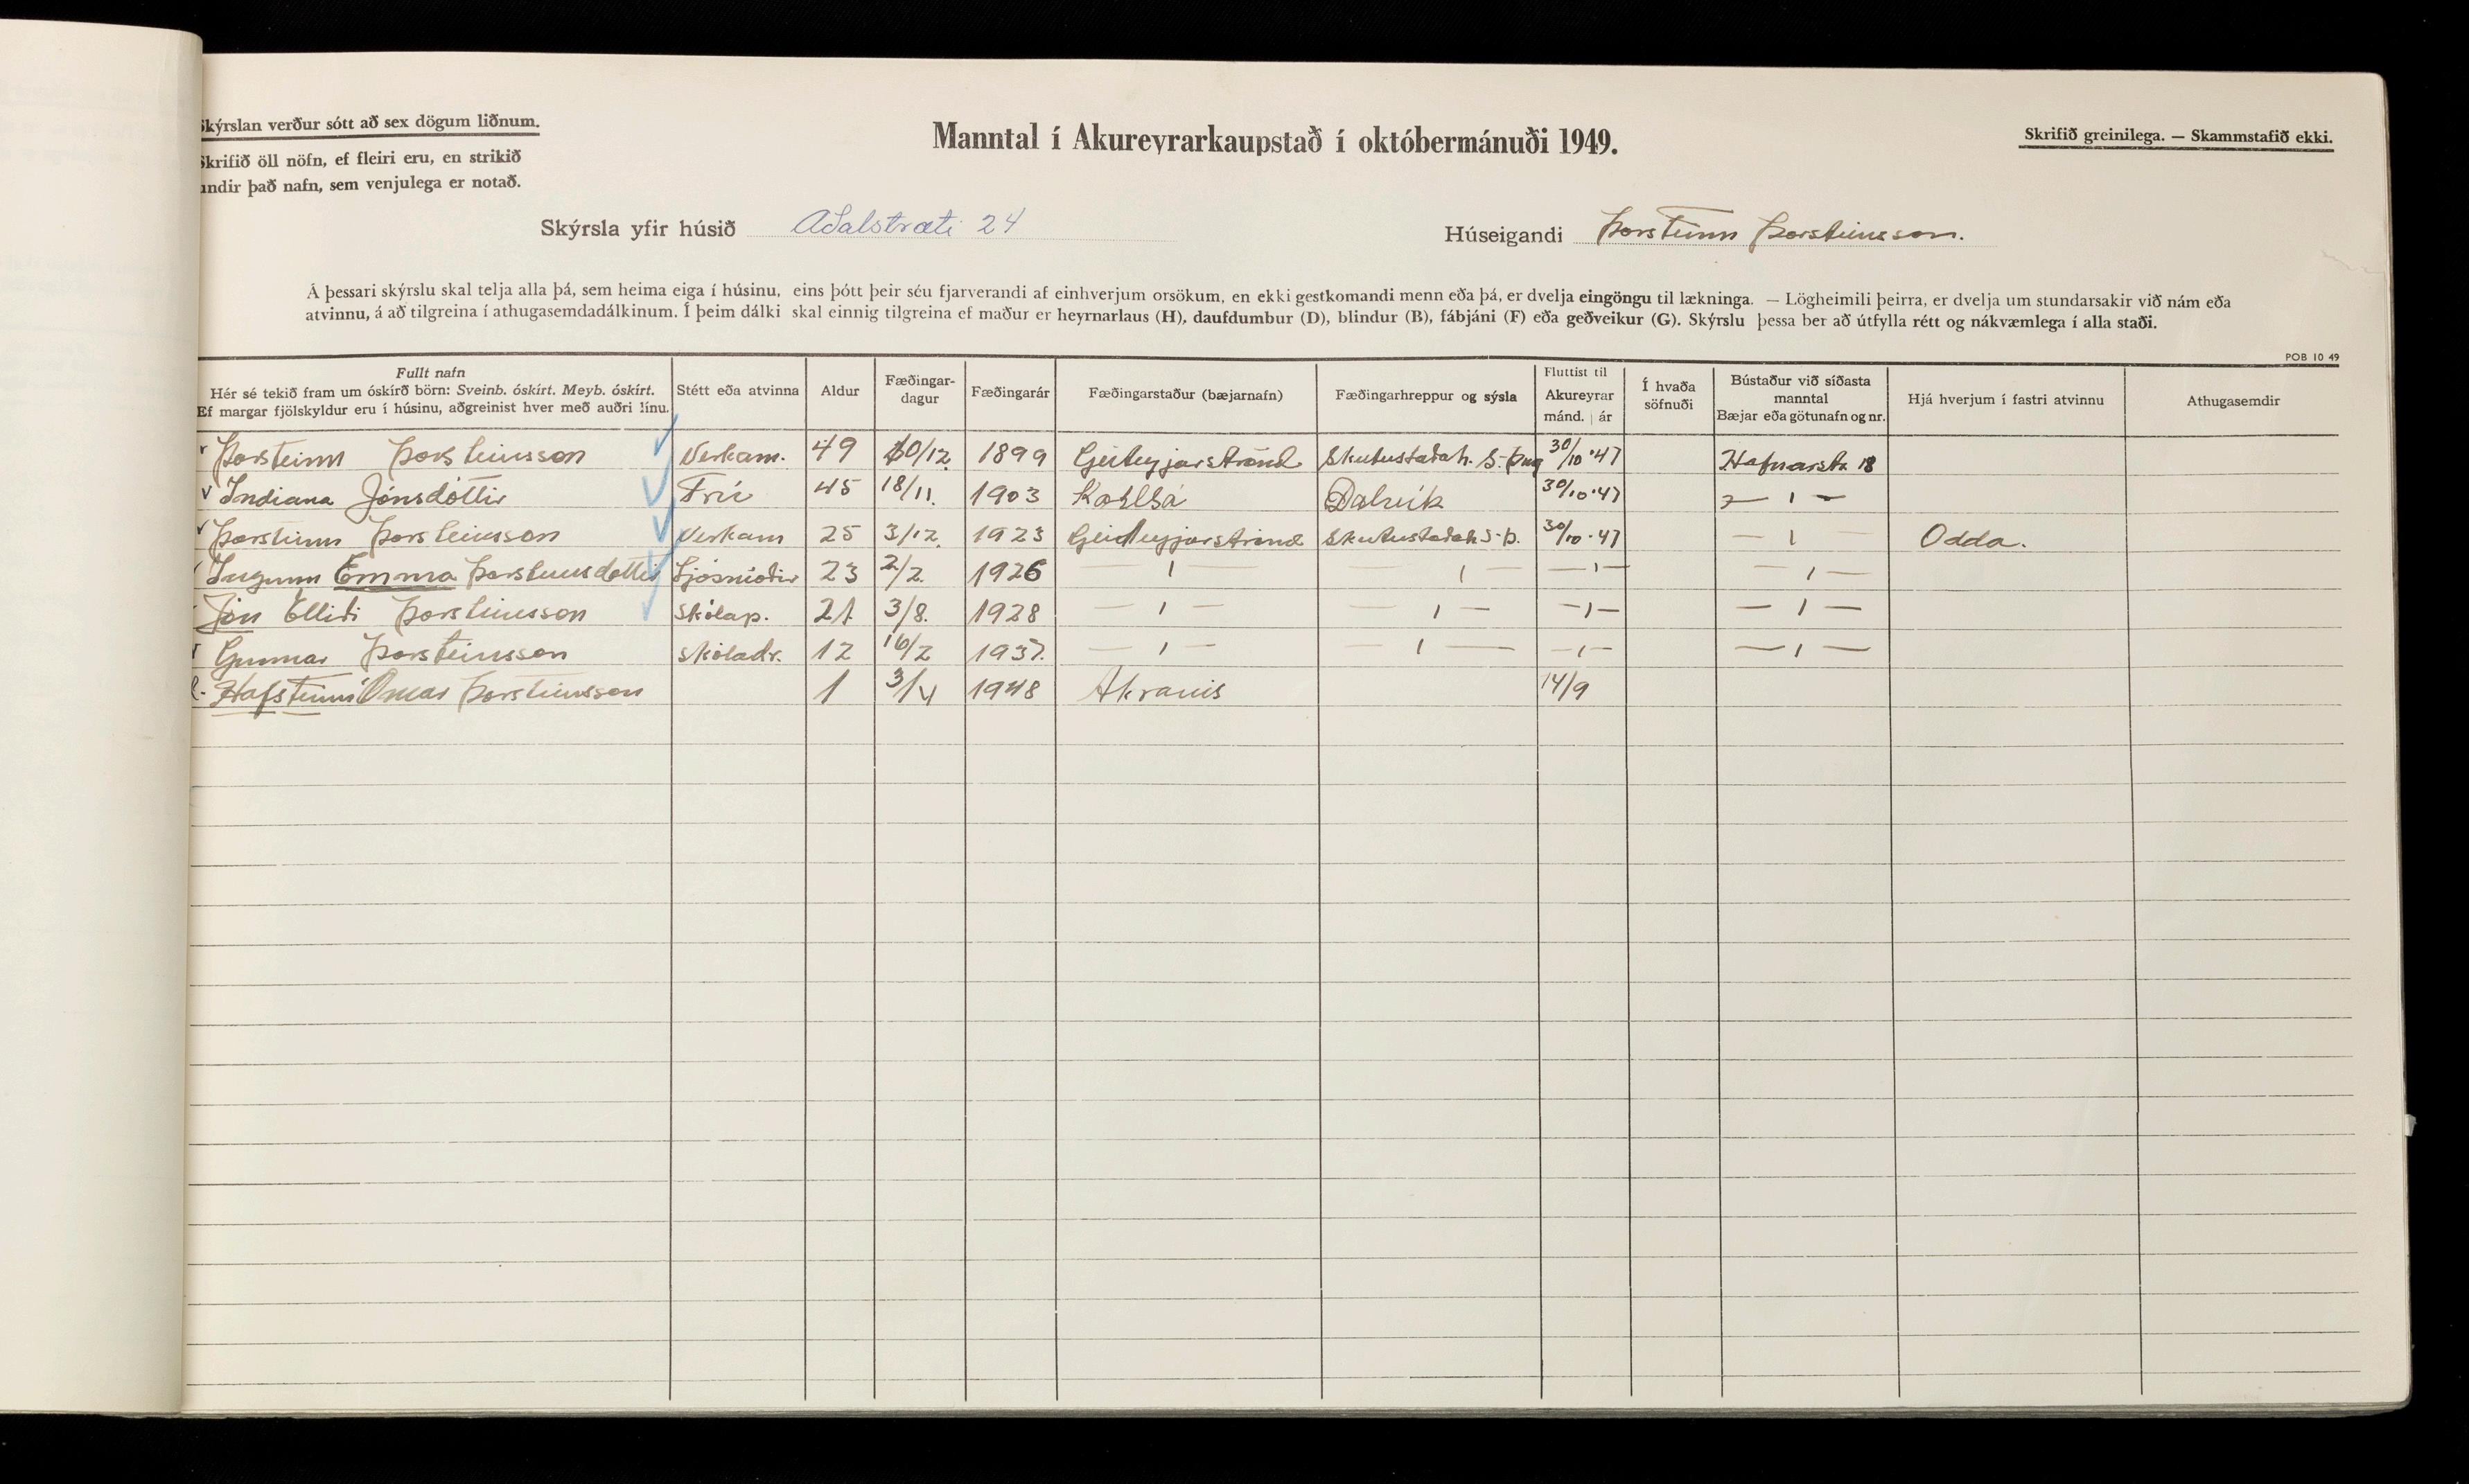 Skýrslan verður sótt að sex dögum liðnum.
Skrifið öll nöfn, ef fleiri eru, en strikið
undir það nafn, sem venjulega er notað.
Manntal í Akureyrarkaupstað í októbermánuði 1949.
Skrifið greinilega. — Skammstafið ekki.
Skýrsla yfir húsið Aðalstræti 24
Húseigandi Þorsteinn Þorsteinsson.
Á þessari skýrslu skal telja alla þá, sem heima eiga í húsinu, eins þótt þeir séu fjarverandi af einhverjum orsökum, en ekki gestkomandi menn eða þá, er dvelja eingöngu til lækninga. — Lögheimili þeirra, er dvelja um stundarsakir við nám eða
atvinnu, á að tilgreina í athugasemdadálkinum. Í þeim dálki skal einnig tilgreina ef maður er heyrnarlaus (H), daufdumbur (D), blindur (B), fábjáni (F) eða geðveikur (G). Skýrslu þessa ber að útfylla rétt og nákvæmlega í alla staði.
POB 10 49
Fullt nafn
Hér sé tekið fram um óskírð börn: Sveinb. óskírt. Meyb. óskírt.
Ef margar fjölskyldur eru í húsinu, aðgreinist hver með auðri línu.
Stétt eða atvinna
Aldur
Fæðingar-
dagur
Fæðingarár
Fæðingarstaður (bæjarnafn)
Fæðingarhreppur og sýsla
Fluttist til
Akureyrar
mánd. | ár
Í hvaða
söfnuði
Bústaður við síðasta
manntal
Bæjar eða götunafn og nr.
Hjá hverjum í fastri atvinnu
Athugasemdir
Þorsteinn Þorsteinsson Verkam. 49 10/12. 1899 Geiteyjarströnd Skutustaðah. S-Þing 30/10 '47 Hafnarstr. 18
Indiana Jónsdóttir Frú 45 18/11. 1903 Karlsá Dalvik 30/10 '47 — 〃 —
Þorsteinn Þorsteinsson Verkam 25 3/12. 1923 Geiteyjarströnd Skutustaðah S-Þ. 30/10 '47 — 〃 — Odda.
Ingunn Emma Þorsteinsdóttir Ljósmóðir 23 2/2. 1926 — 〃 — — 〃 — — 〃 — — 〃 —
Jón Elliði Þorsteinsson Skólap. 21 3/8. 1928 — 〃 — — 〃 — — 〃 — — 〃 —
Gunnar Þorsteinsson Skóladr. 12 16/2 1937. — 〃 — — 〃 — — 〃 — — 〃 —
Hafsteinn Ómar Þorsteinsson 1 3/4 1948 Akranis 14/9